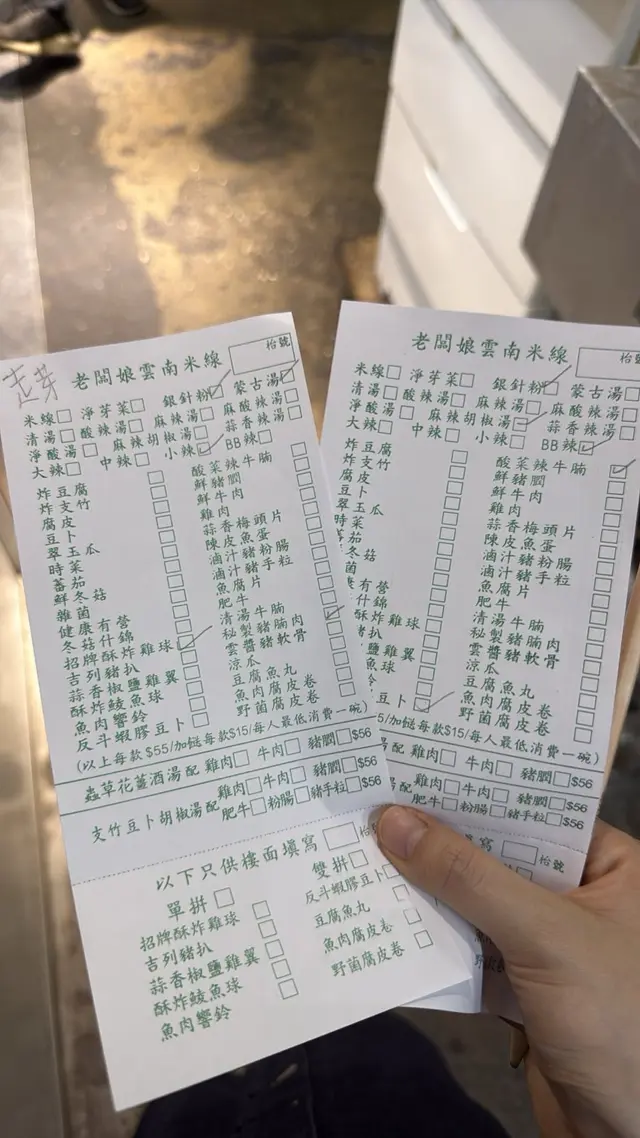 走芽
老闆娘雲南米線
枱號
米線 淨芽菜 銀針粉 蒙古湯
清湯 酸辣湯 麻辣湯 麻酸辣湯
淨酸湯 麻辣胡椒湯 蒜香辣湯
大辣 中辣 小辣 BB辣
炸豆腐 酸菜辣牛腩
炸支竹 鮮豬膶
腐皮 鮮牛肉
豆卜 雞肉
翠玉瓜 蒜香梅頭片
時菜 陳皮魚蛋
蕃茄 滷汁豬粉腸
鮮冬菇 滷汁豬手粒
雜菌 魚腐片
健康有營 肥牛
冬菇什錦 清湯牛腩
招牌酥炸雞球 秘製豬腩肉
吉列豬扒 雲醬豬軟骨
蒜香椒鹽雞翼 涼瓜
酥炸鯪魚球 豆腐魚丸
魚肉響鈴 魚肉腐皮卷
反斗蝦膠豆卜 野菌腐皮卷
(以上每款$55/加餸每款$15/每人最低消費一碗)
蟲草花薑酒湯配 雞肉 牛肉 豬膶 $56
支竹豆卜胡椒湯配 雞肉 牛肉 豬膶 $56
肥牛 粉腸 豬手粒 $56
以下只供樓面填寫 枱號
單拼 雙拼
招牌酥炸雞球 反斗蝦膠豆卜
吉列豬扒 豆腐魚丸
蒜香椒鹽雞翼 魚肉腐皮卷
酥炸鯪魚球 野菌腐皮卷
魚肉響鈴
老闆娘雲南米線
枱號
米線 淨芽菜 銀針粉 蒙古湯
清湯 酸辣湯 麻辣湯 麻酸辣湯
淨酸湯 麻辣胡椒湯 蒜香辣湯
大辣 中辣 小辣 BB辣
炸豆腐 酸菜辣牛腩
炸支竹 鮮豬膶
腐皮 鮮牛肉
豆卜 雞肉
翠玉瓜 蒜香梅頭片
時菜 陳皮魚蛋
蕃茄 滷汁豬粉腸
冬菇 滷汁豬手粒
菌 魚腐片
有營 肥牛
什錦 清湯牛腩
酥炸雞球 秘製豬腩肉
豬扒 雲醬豬軟骨
鹽雞翼 涼瓜
魚球 豆腐魚丸
魚肉腐皮卷
豆卜 野菌腐皮卷
5/加餸每款$15/每人最低消費一碗)
湯配 雞肉 牛肉 豬膶 $56
湯配 雞肉 牛肉 豬膶 $56
肥牛 粉腸 豬手粒 $56
寫 枱號